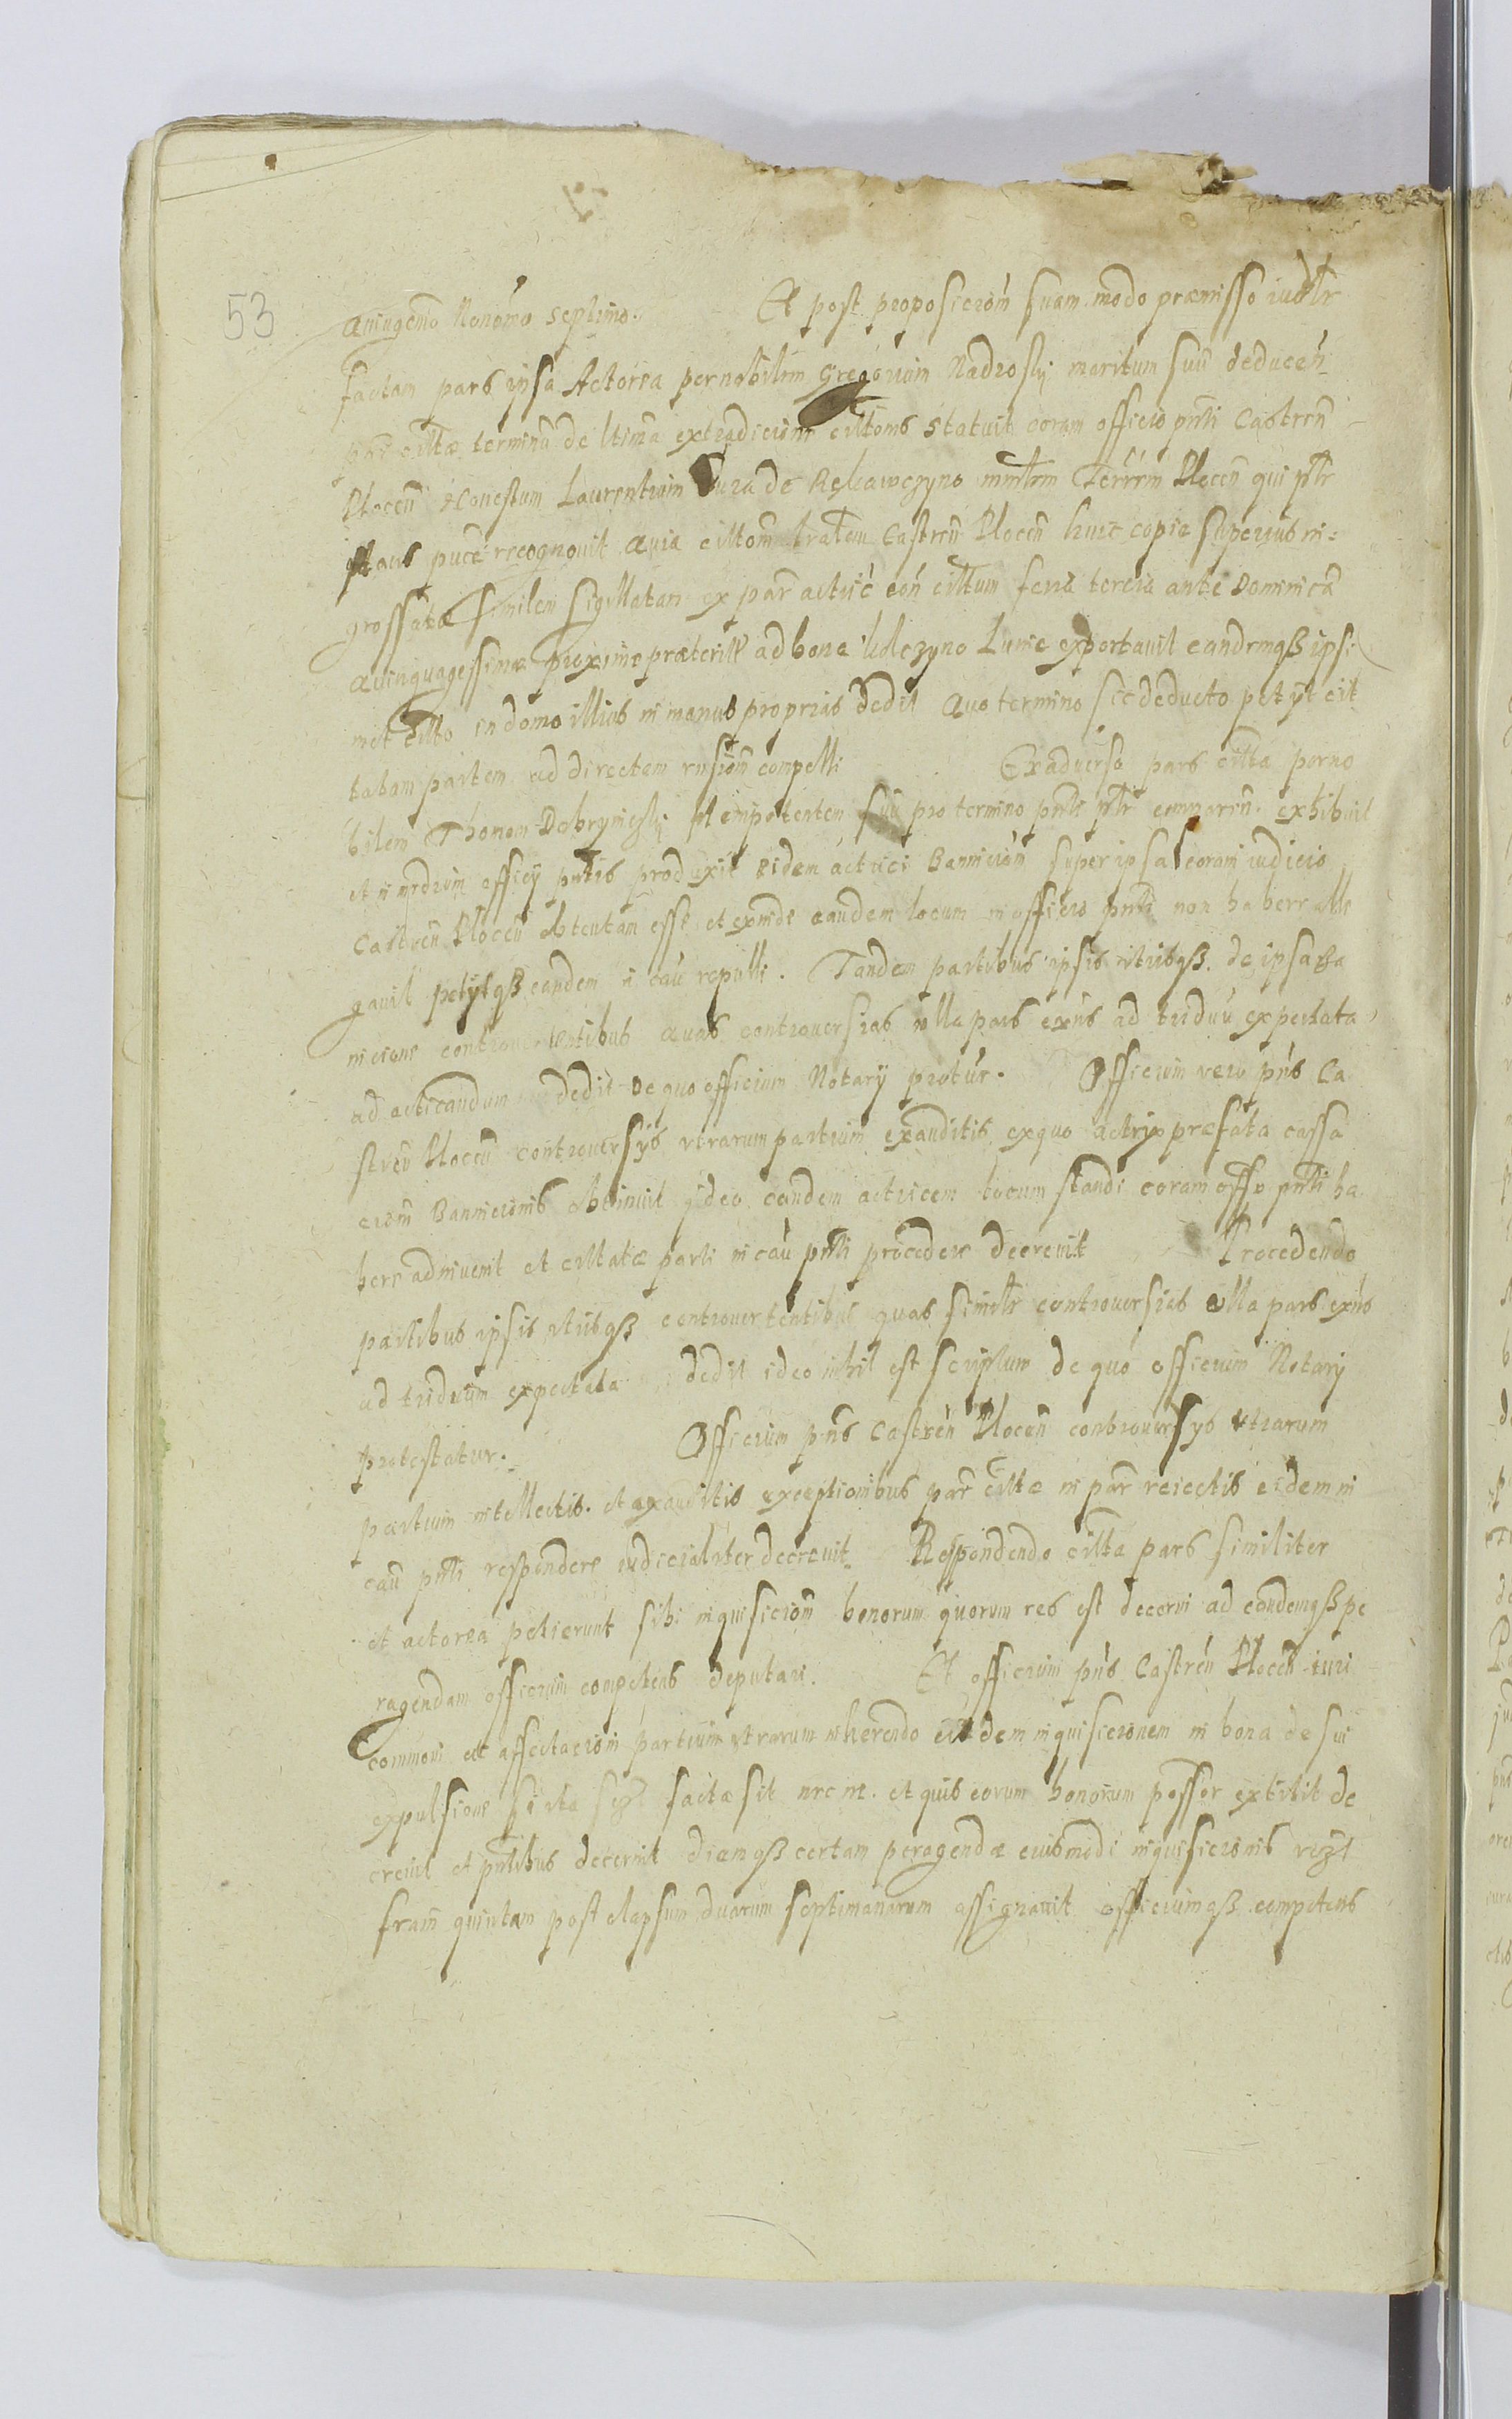 53
Quingen̄o Nonōmo septimo. Et post proposicioñ suam modo præmisso iudłr
factam pars ipsa Actorea per nobilem Gregorium Nadrosky maritum suū deducen̄
citt̃æ terminū de ltima extradicione cittōms statuit coram officio pn̄ti Castren̄
Plocen̄ Honestum Laurentium de Rękawczyno mrłrm Terrrm Plocen̄ qui płr
stans recognouit quia cittoñ Castren̄ Plocen̄ huic copiæ superius in=
grossatæ similem sigillatam ex par̄ actric̄ con̄ cittum feria tercia ante Dominicā
Quinquagessimæ proxime præterit̃ ad bona Kulczyno exportauit eandemqß ipsi
met citto in domo illius in manus proprias dedit Quo termino sic deducto petyt cit
tatam partem ad directam compelli Ex aduerso pars citta per no
bilem Thomam Dobryniczky plenipotentem suū pro termino pn̄ti płr comparen̄. exhibuit
et in medium officij pn̄tis produxit eidem actrici Bannicioñ super ipsa coram iudicio
Castren̄ Plocen̄ obtentam esse et exinde eandem locum in officio pn̄ti non habere alle
gauit petijtqß eandem a cau repelli. Tandem partibus ipsis vtrisqß de ipsa ba
nicione controuertentibus quas controuersias nulla pars ex̄ns ad triduū expectata
ad acticandum dedit de quo officium Notarij protur̄. Officium vero pn̄s Ca
stren̄ Plocen̄ controuersys vtrarum partium exauditis ex quo actrix præfata cassa
cioñ Bannicionis obtinuit ideo eandem actricem locum standi coram offo pn̄ti ha
bere adinuenit et cittatæ parti in cau pn̄ti procedere decreuit Procedendo
partibus ipsis vtrisqß controuertentibus quas similr controuersias nulla pars ex̄ns
ad triduum expectata dedit ideo nihil est scriptum de quo officium Notarij
protestatur. Officium pn̄s Castren̄ Plocen̄ controuersys vtrarum
partium intellectis. et exauditis exceptionibus par̄ citt̃æ in par̄ reiectis eidem in
cau pn̄ti respondere iudicialiter decreuit. Respondendo citta pars similiter
et actorea petierunt sibi inquisicioñ bonorum quorum res est decerni ad eandemqß pe
ragendam officium competens deputari. Et officium pn̄s Castren̄ Plocen̄ iuri
communi et affectacioni partium vtrarum inherendo eisdem inquisicionem in bona de sui
expulsione facta sit nec ne. et quis eorum bonorum possor extitit de
creuit et pn̄tibus decernit diemqß certam peragendæ euismodi inquisicionis vizt
fraɱ quintam post elapsum duarum septimanarum assignauit officiumqß competens